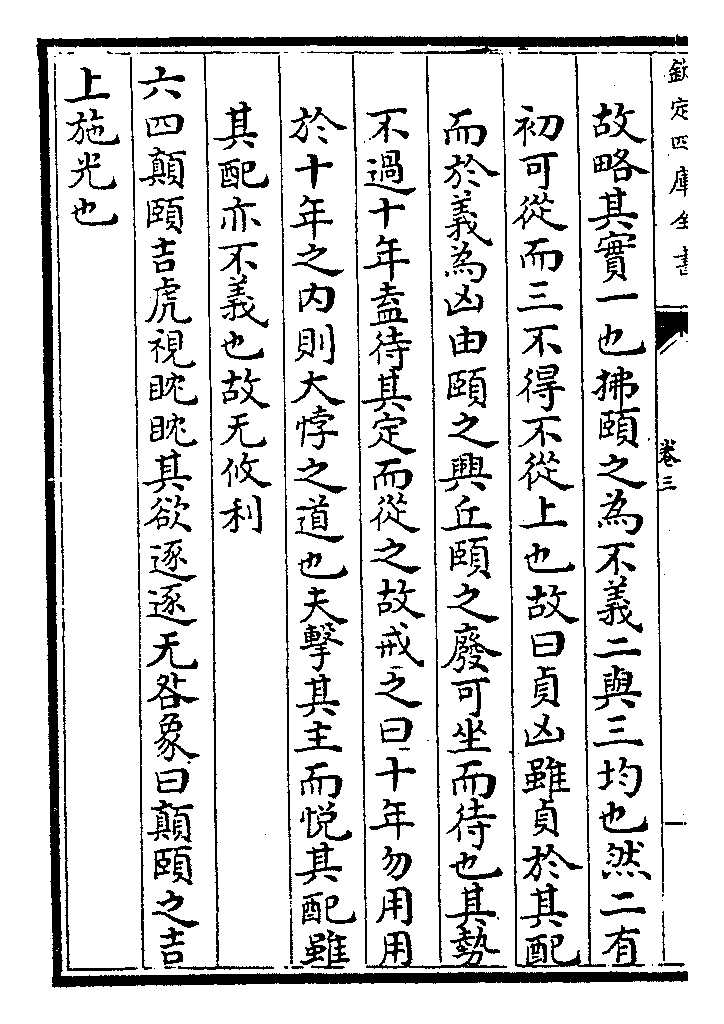 欽定四庫全書
卷三
故略其實一也拂頤之為不義二與三均也然二有
初可從而三不得不從上也故曰貞凶雖貞於其配
而於義為凶由頤之興丘頤之廢可坐而待也其勢
不過十年盍待其定而從之故戒之曰十年勿用用
於十年之内則大悖之道也夫擊其主而悅其配雖
其配亦不義也故无攸利
六四顛頤吉虎視眈眈其欲逐逐无咎象曰顛頤之吉
上施光也